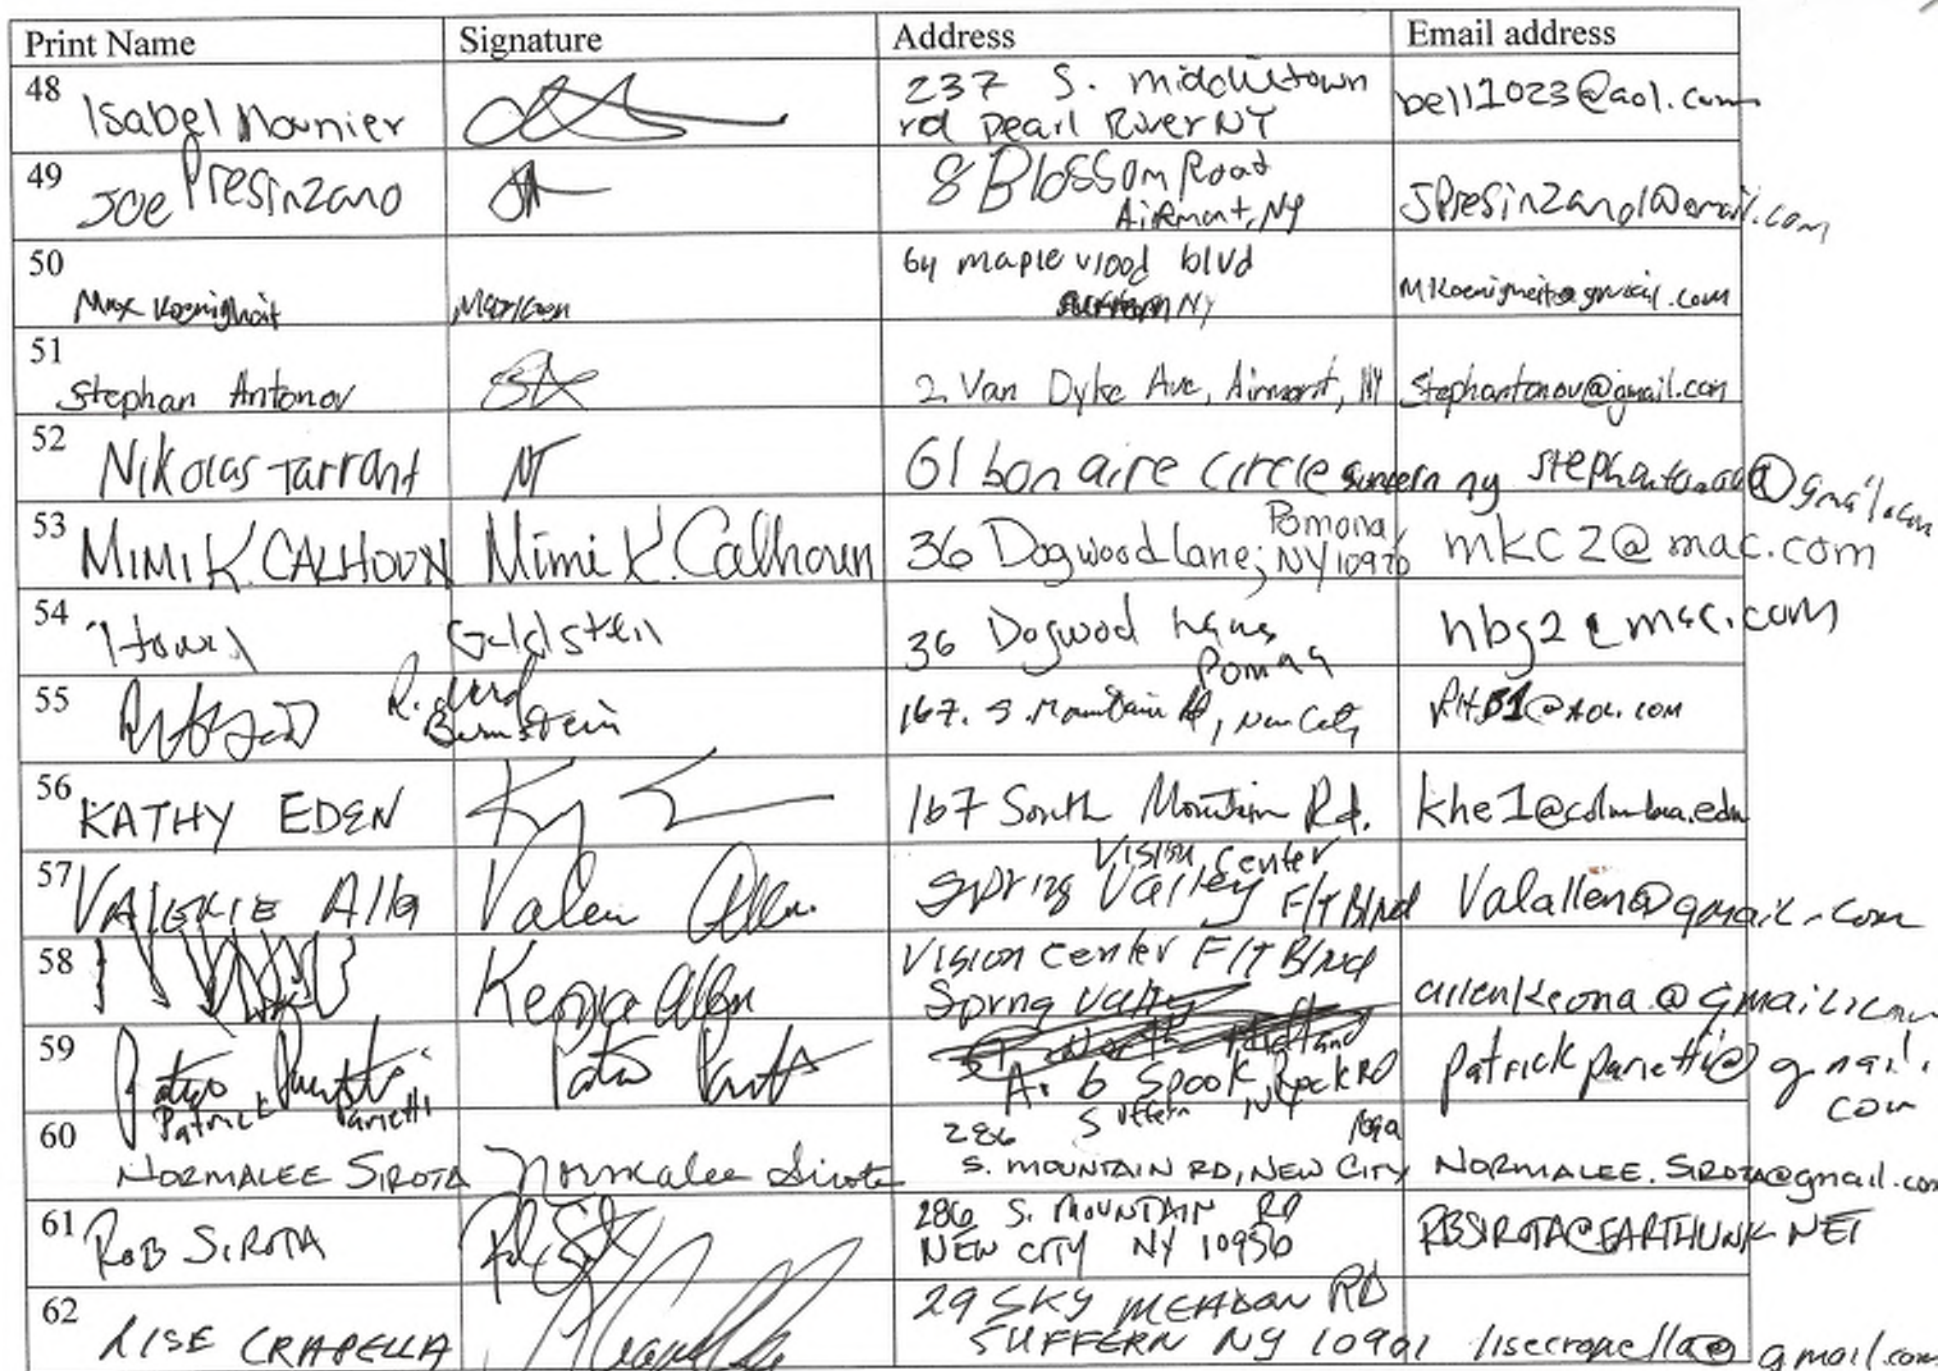 Print Name Signature Address Email address
48 Isabel Mounier 237 S. Middletown rd Pearl River NY bell1023@aol.com
49 Joe Presinzano 8 Blossom Road Airmont, NY JPresinzano1@gmail.com
50 Max Koenigheit 64 maplewood blvd suffern NY MKoenigheit@gmail.com
51 Stephan Antonov 2 Van Dyke Ave, Airmont, NY Stephantonov@gmail.com
52 Nikolas Tarrant NT 61 bon aire circle suffern ny @gmail.com
53 MIMI K. CALHOUN Mimi K. Calhoun 36 Dogwood lane; Pomona NY 10970 mkc2@mac.com
54 Goldstein 36 Dogwood Lane Pomona hbg2@mac.com
55 Richard Bernstein 167. S. Mountain Rd, New City RHB1@AOL.COM
56 KATHY EDEN 167 South Mountain Rd. khe1@columbia.edu
57 VALERIE Allen Valerie Allen Vision Center Spring Valley F/T Blvd Valallen@gmail.com
58 Allen Vision Center F/T Blvd Sprng Valley allenkeona@gmail.com
59 Patrick Parietti 6 Spook Rock RD Suffern NY patrickparietti@gmail.com
60 NORMALEE SIROTA Normalee Sirota 286 S. MOUNTAIN RD, NEW CITY NORMALEE.SIROTA@gmail.com
61 ROB SIROTA 286 S. MOUNTAIN RD NEW CITY NY 10956 RBSIROTA@EARTHLINK NET
62 LISE CRAPELLA 29 SKY MEADOW RD SUFFERN NY 10901 lisecrapella@gmail.com